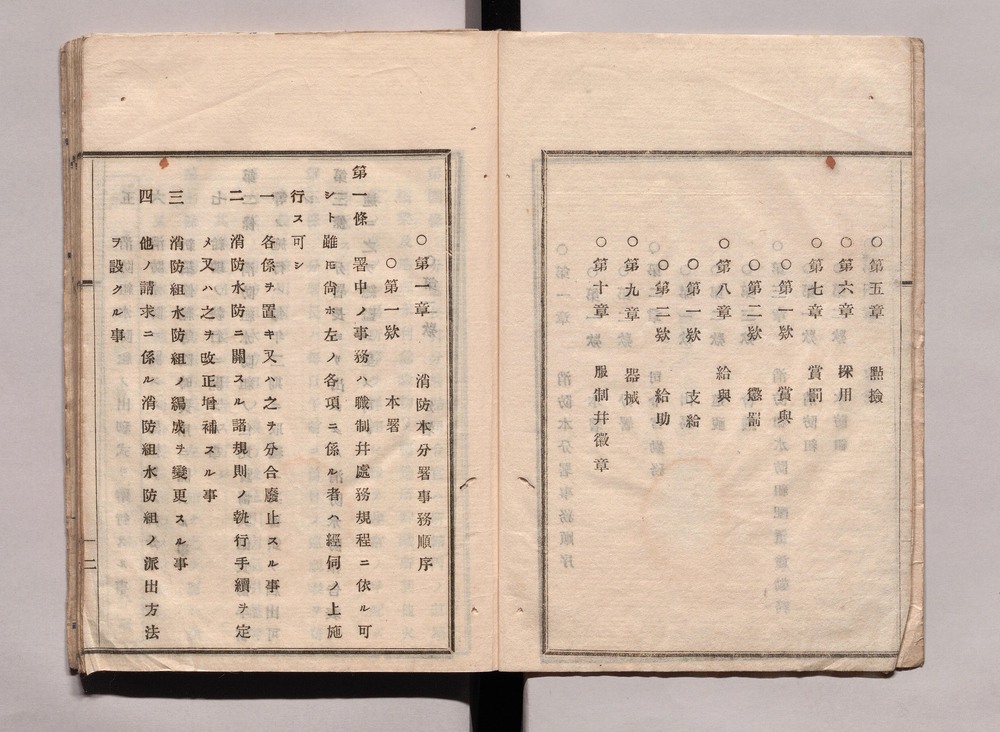 ○第五章　點撿
○第六章　採用
○第七章　賞罰
○第一欵　賞與
○第二欵　懲罰
○第八章　給與
○第一欵　支給
○第二欵　給助
○第九章　器械
○第十章　服制并徽章
○第一章　消防本分署事務順序
○第一欵　本署
第一條　署中ノ事務ハ職制并處務規程ニ依ル可
シト雖𪜈尙ホ左ノ各項ニ係ル者ハ經伺ノ上施
行ス可シ
一　各係ヲ置キ又ハ之ヲ分合廢止スル事
二　消防水防ニ關スル諸規則ノ執行手續ヲ定
メ又ハ之ヲ改正增補スル事
三　消防組水防組ノ編成ヲ變更スル事
四　他ノ請求ニ係ル消防組水防組ノ派出方法
ヲ設クル事
二